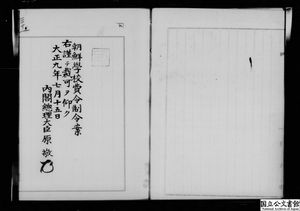 朝鮮學校費令制令案
右謹テ裁可ヲ仰ク
大正九年七月十五日
内閣總理大臣原敬
国立公文書館
National Archives of Japan